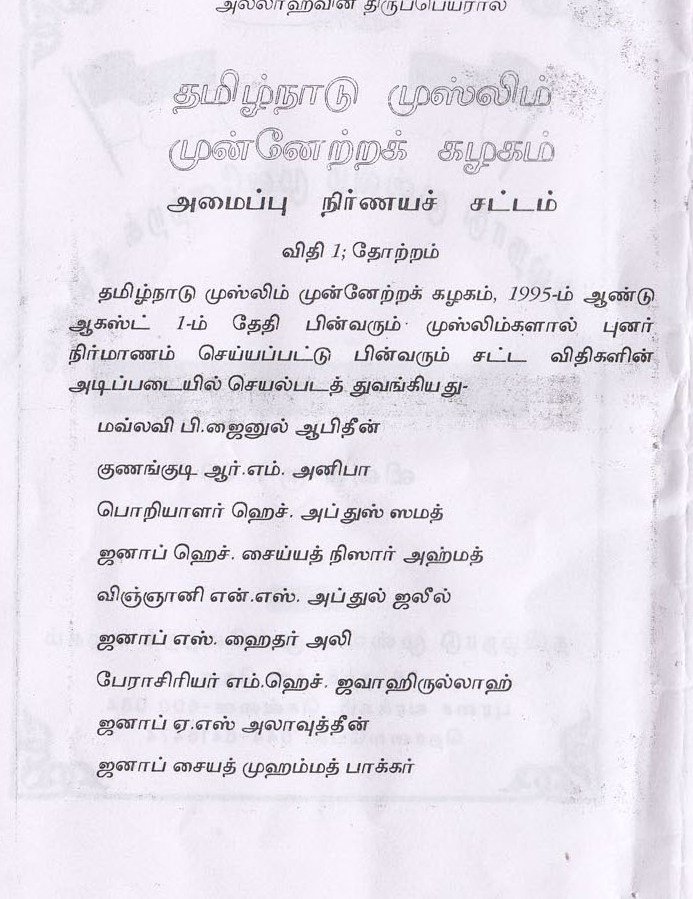 அல்லாஹ்வின் திருப்பெயரால்
தமிழ்நாடு முஸ்லிம்
முன்னேற்றக் கழகம்
அமைப்பு நிர்ணயச் சட்டம்
விதி 1; தோற்றம்
தமிழ்நாடு முஸ்லிம் முன்னேற்றக் கழகம், 1995-ம் ஆண்டு
ஆகஸ்ட் 1-ம் தேதி பின்வரும் முஸ்லிம்களால் புனர்
நிர்மாணம் செய்யப்பட்டு பின்வரும் சட்ட விதிகளின்
அடிப்படையில் செயல்படத் துவங்கியது-
மவ்லவி பி.ஜைனுல் ஆபிதீன்
குணங்குடி ஆர்.எம். அனிபா
பொறியாளர் ஹெச். அப்துஸ் ஸமத்
ஜனாப் ஹெச். சைய்யத் நிஸார் அஹ்மத்
விஞ்ஞானி என்.எஸ். அப்துல் ஜலீல்
ஜனாப் எஸ். ஹைதர் அலி
பேராசிரியர் எம்.ஹெச். ஜவாஹிருல்லாஹ்
ஜனாப் ஏ.எஸ் அலாவுத்தீன்
ஜனாப் சையத் முஹம்மத் பாக்கர்